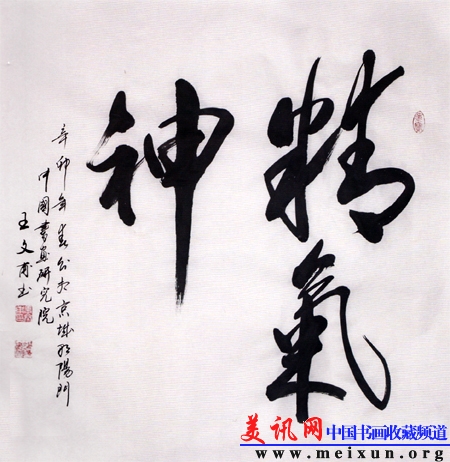 精氣
神
辛卯年春公於京城朝陽門
中國書畫研究院
王文甫书
美讯网 中国书画收藏频道
www.meixun.org